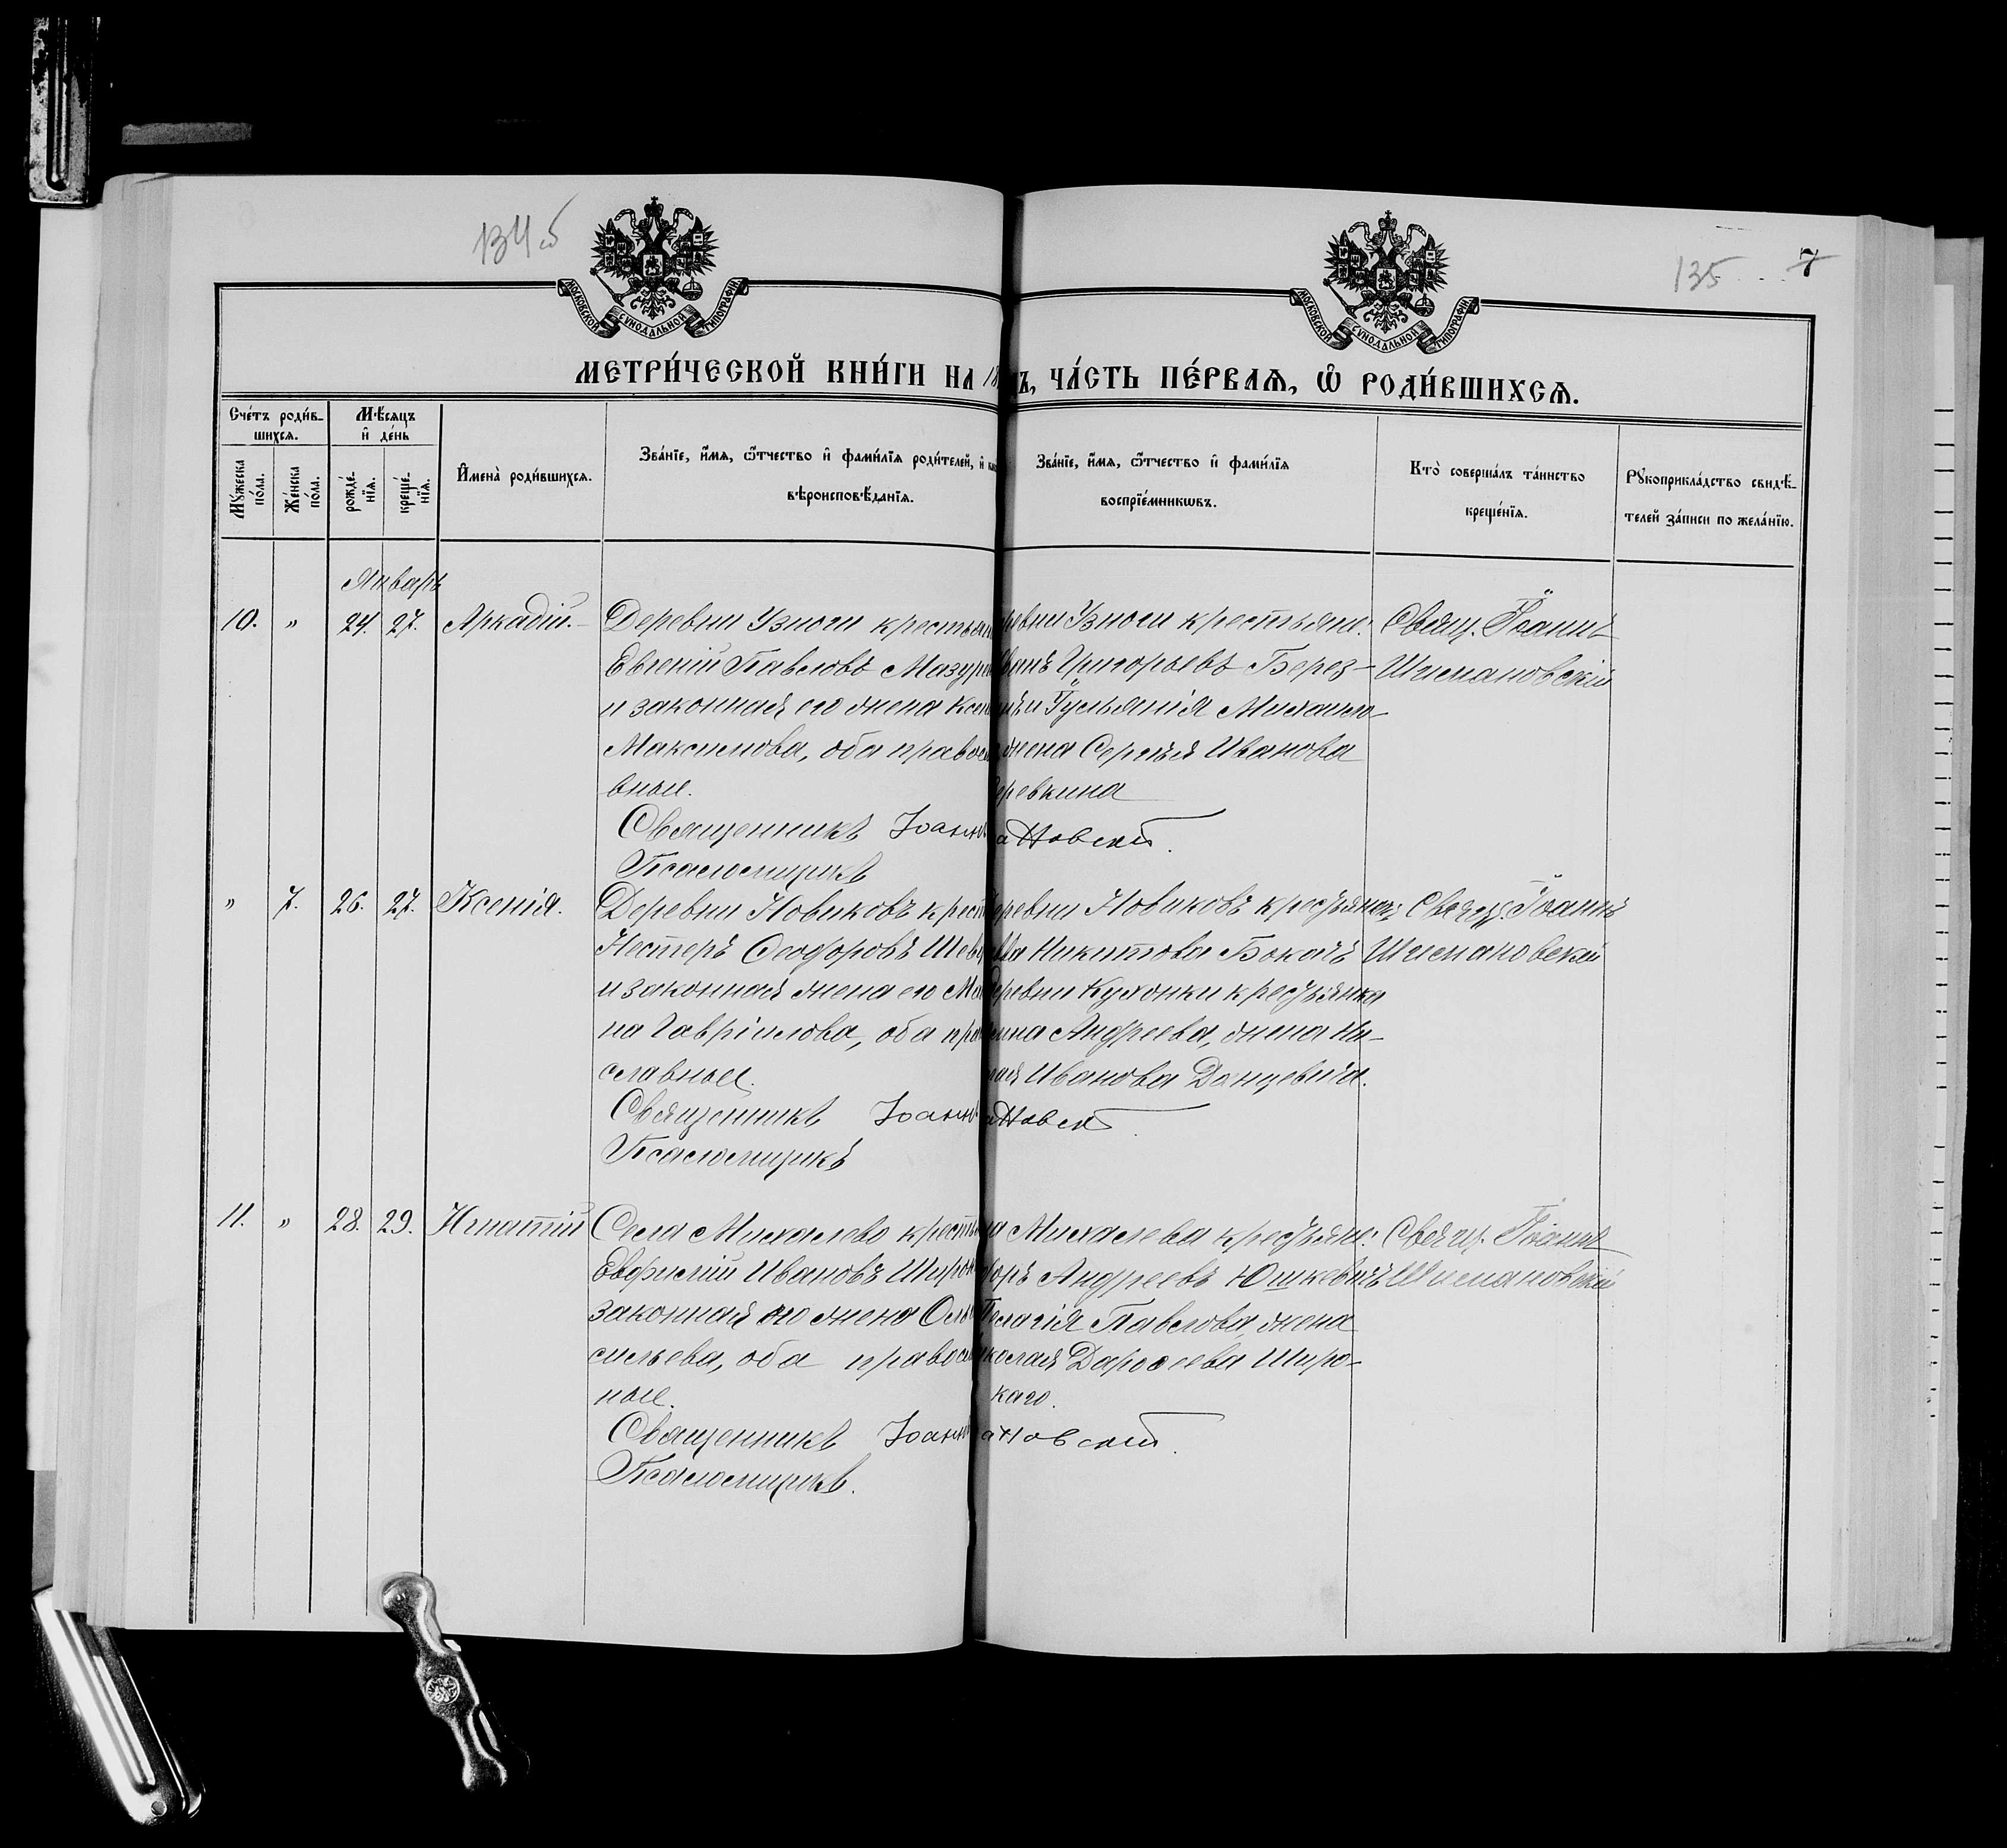 134 об
135
7
МОСКОВСКОЙ СѴНОДАЛЬНОЙ ТИПОГРАФІИ
МОСКОВСКОЙ СѴНОДАЛЬНОЙ ТИПОГРАФІИ
МЕТРИ́ЧЕСКОЙ КНИ́ГИ НА 18
ЧА́СТЬ ПЕ́РВАѦ, Ѽ РОДИ́ВШИХСѦ.
Сче́тъ роди́в-
шихсѧ.
Мѣ́сяцъ
и де́нь
Мꙋ́жеска по́ла.
Же́нска по́ла.
рожде́-
нїѧ.
креще́-
нїѧ.
Имена̀ роди́вшихсѧ.
Зва́нїе, и́мѧ, ѻ́тчество и фами́лїѧ роди́телей, и
вѣроисповѣ́данїѧ.
Зва́нїе, и́мѧ, ѻ́тчество и фами́лїѧ
воспрїе́мникѡвъ.
Кто̀ соверша́лъ та́инство
креще́нїѧ.
Рꙋкоприкла́дство свидѣ́-
телей за́писи по жела́нїю.
Январь
10. " 24. 27. Аркадій.
Деревни Узноги крестьян
Евгеній Павловъ Мазур
и законная его жена Ксен
Максимова, оба правосла
вные.
Священникъ Іоаннъ
Псаломщикъ
ревни Узноги крестьяне:
ванъ Григорьевъ Берез-
и Іульянія Михаило-
жена Сергѣя Иванова
ревкина
ановскій.
Свящ. Іоаннъ
Шимановскій
" 7. 26. 27. Ксенія.
Деревни Новиковъ крест
Нестеръ Ѳеодоровъ Шев
и законная жена его Ма
на Гавріилова, оба пра
славные.
Священникъ Іоаннъ
Псаломщикъ
ревни Новиковъ крестьянинъ
Никитова Бокачъ
ревни Кухонки крестьянка
рина Андреева, жена Ни-
лая Иванова Данцевича.
ановск
Свящ. Іоаннъ
Шимановскій
11. " 28. 29. Игнатій
Села Михалево кресть
Евфимій Ивановъ Широк
законная его жена Оль
сильева, оба правосл
ные.
Священникъ Іоаннъ
Псаломщикъ.
ла Михалева крестьяне:
доръ Андреевъ Юшкевичъ
Пелагія Павлова, жена
колая Дароѳеева Широ-
каго.
ановскій.
Свящ. Іоаннъ
Шимановскій